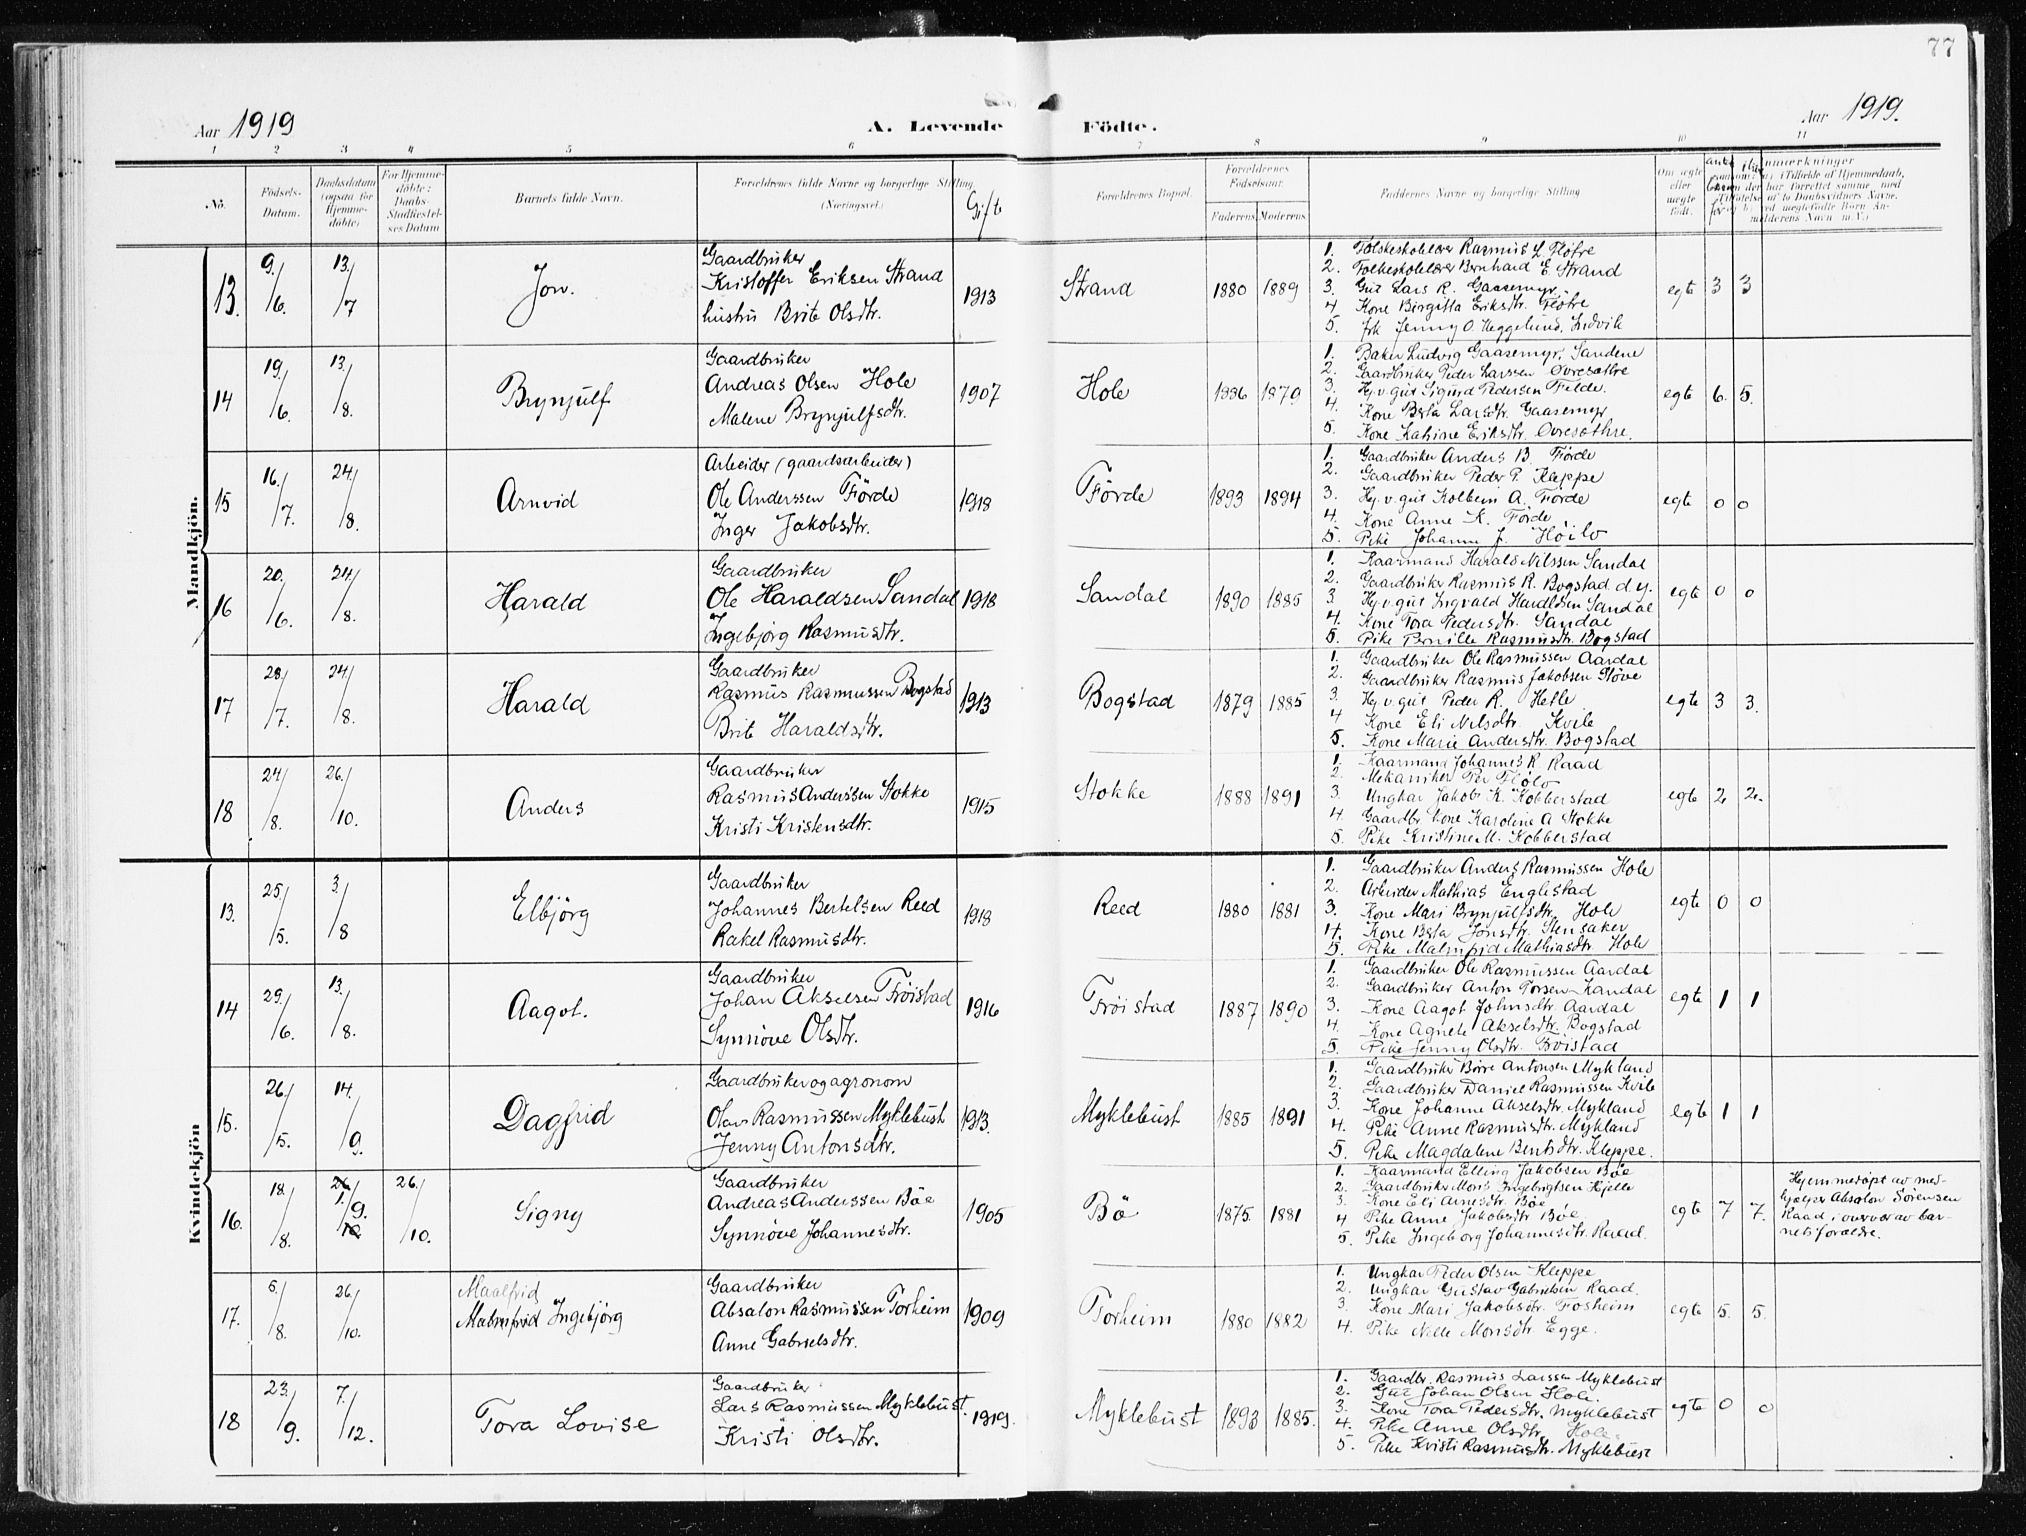 77
Aar 1919
A. Levende Födte.
Aar 1919.
1 2 3 4 5 6 7 8 9 10 11
No.
Födsels-Datum.
Daabsdatum (ogsaa for Hjemme-döbte)
For Hjemme-döbte: Daabs-Stadfæstel-ses Datum
Barnets fulde Navn.
Forældrenes fulde Navne og borgerlige Stilling (Næringsvei.)
Gift
Forældrenes Bopæl.
Forældrenes Födselsaar.
Faderens Moderens
Faddernes Navne og borgerlige Stilling
Om ægte eller uægte födt.
Mandkjön.
13. 9./6. 13./7 Jon.
Gaardbruker
Kristoffer Eriksen Strand
hustru Brite Olsdtr.
1913 Strand 1880 1889
1. Folkeskolelærer Rasmus L. Fløtre
2. Folkeskolelærer Bernhard E. Strand
3. Gut Lars R. Gaasemyr
4. Kone Birgitta Eriksdtr. Fløtre
5. Frk Jenny O. Heggelund, Indvik
egte 3 3
14 19./6. 13./8. Brynjulf
Gaardbruker
Andreas Olsen Hole
Malene Brynjulfsdtr.
1907 Hole 1886 1879
1. Baker Ludvig Gaasemyr, Sandene
2. Gaardbruker Peder Larssen Övresøthre
3. Hj.v. gut Sigurd Pedersen Felde.
4. Kone Berta Larsdtr. Gaasemyr
5. Kone Katrine Eriksdtr. Övresøthre.
egte 6. 5.
15 16./7. 24./8. Arnvid
Arbeider (gaardsarbeider)
Ole Anderssen Förde
Inger Jakobsdtr.
1918 Förde 1893 1894
1. Gaardbruker Anders B. Förde
2. Gaardbruker Peder P. Kleppe
3. Hj.v. gut Kolbein A. Förde
4. Kone Anne K. Förde
5. Pike Johanne J. Höilo
egte 0 0
16 20./6. 24./8. Harald
Gaardbruker
Ole Haraldsen Sandal
Ingebjörg Rasmusdtr.
1918 Sandal 1890 1885
1. Kaarmand Harald Nilssen Sandal
2. Gaardbruker Rasmus R. Bogstad d.y.
3. Hj.v. gut Ingvald Haraldsen Sandal
4. Kone Tora Pedersdtr. Sandal
5. Pike Pernille Rasmusdtr. Bogstad
egte 0 0
17 28./7. 24./8. Harald
Gaardbruker
Rasmus Rasmussen Bogstad
Brite Haraldsdtr.
1913 Bogstad 1879 1885
1. Gaardbruker Ole Rasmussen Aardal
2. Gaardbruker Rasmus Jakobsen Støve
3. Hj.v. gut Peder R. Hetle
4 Kone Eli Nilsdtr. Kvile
5. Kone Marie Andersdtr. Bogstad
egte 3 3.
18 24/8. 26./10. Anders
Gaardbruker
Rasmus Anderssen Stokke
Kristi Kristensdtr.
1915 Stokke 1888 1891
1. Kaarmand Johannes R. Raad
2. Mekaniker Per Flølo
3. Ungkar Jakob K. Kobberstad
4. Gaardbr. kone Karoline A Stokke
5. Pike Kristine M. Kobberstad
egte 2 2.
Kvindekjön
13. 25./5. 3./8 Elbjörg
Gaardbruker
Johannes Bertelsen Reed
Rakel Rasmusdtr.
1918 Reed 1880 1881
1. Gaardbruker Anders Rasmussen Hole
2. Arbeider Mathias Englestad
3. Kone Mari Brynjulfsdtr. Hole
4. Kone Berta Jonsdtr. Stensaker
5. Pike Malmfrid Mathiasdtr. Hole
egte 0 0
14 29./6. 13./8. Aagot.
Gaardbruker
Johan Akselsen Tröistad
Synnöve Olsdtr.
1916 Tröistad 1887 1890
1. Gaardbruker Ole Rasmussen Aardal
2. Gaardbruker Anton Torsen Sandal
3. Kone Aagot Johnsdtr. Aardal
4. Kone Agnete Akselsdtr. Bogstad
5. Pike Jenny Olsdtr. Evistad
egte 1 1
15. 26./5. 14./9. Dagfrid
Gaardbruker og agronom
Olav Rasmussen Myklebust
Jenny Antonsdtr.
1913. Myklebust 1885 1891
1. Gaardbruker Börre Antonsen Mykland
2. Gaardbruker Daniel Rasmussen Kvile
3. Kone Johanne Akselsdtr. Mykland
4. Pike Anne Rasmusdtr. Mykland
5. Pike Magdalene Bentsdtr. Kleppe.
egte 1 1
16. 18./8. 1./9. 26./10. Signy
Gaardbruker
Andreas Anderssen Böe
Synnöve Johannesdtr.
1905 Bö 1875. 1881
1. Kaarmand Elling Jakobsen Böe
2. Gaardbruker Mons Ingebrigtsen Hjelle
3. Kone Eli Arnesdtr. Böe
4 Pike Anne Jakobsdtr Böe
5. Pike Ingeborg Johannesdtr. Raad.
egte 7 7.
Hjemmedöpt av med-
hjælper Absalon Sörensen
Raad i overvær av bar-
nets forældre.
17. 6./8. 26./10. Maalfrid
Malmfrid Ingebjörg
Gaardbruker
Absalon Rasmussen Torheim
Anne Gabrielsdtr.
1909 Torheim 1880 1882
1. Ungkar Peder Olsen Kleppe
2. Ungkar Gustav Gabrielsen Raad.
3. Kone Mari Jakobsdtr. Fosheim
4. Pike Nelle Monsdtr. Egge.
egte 5. 5.
18 23./9. 7./12. Tora Lovise
Gaardbruker
Lars Rasmussen Myklebust.
Kristi Olsdtr.
1919. Myklebust 1893 1885.
1. Gaardbr. Rasmus Larssen Myklebust
2. Gut Johan Olsen Hole
3. Kone Tora Pedersdtr. Myklebust
4. Pike Anne Olsdtr. Hole
5. Pike Kristi Rasmusdtr. Myklebust
egte 0 0